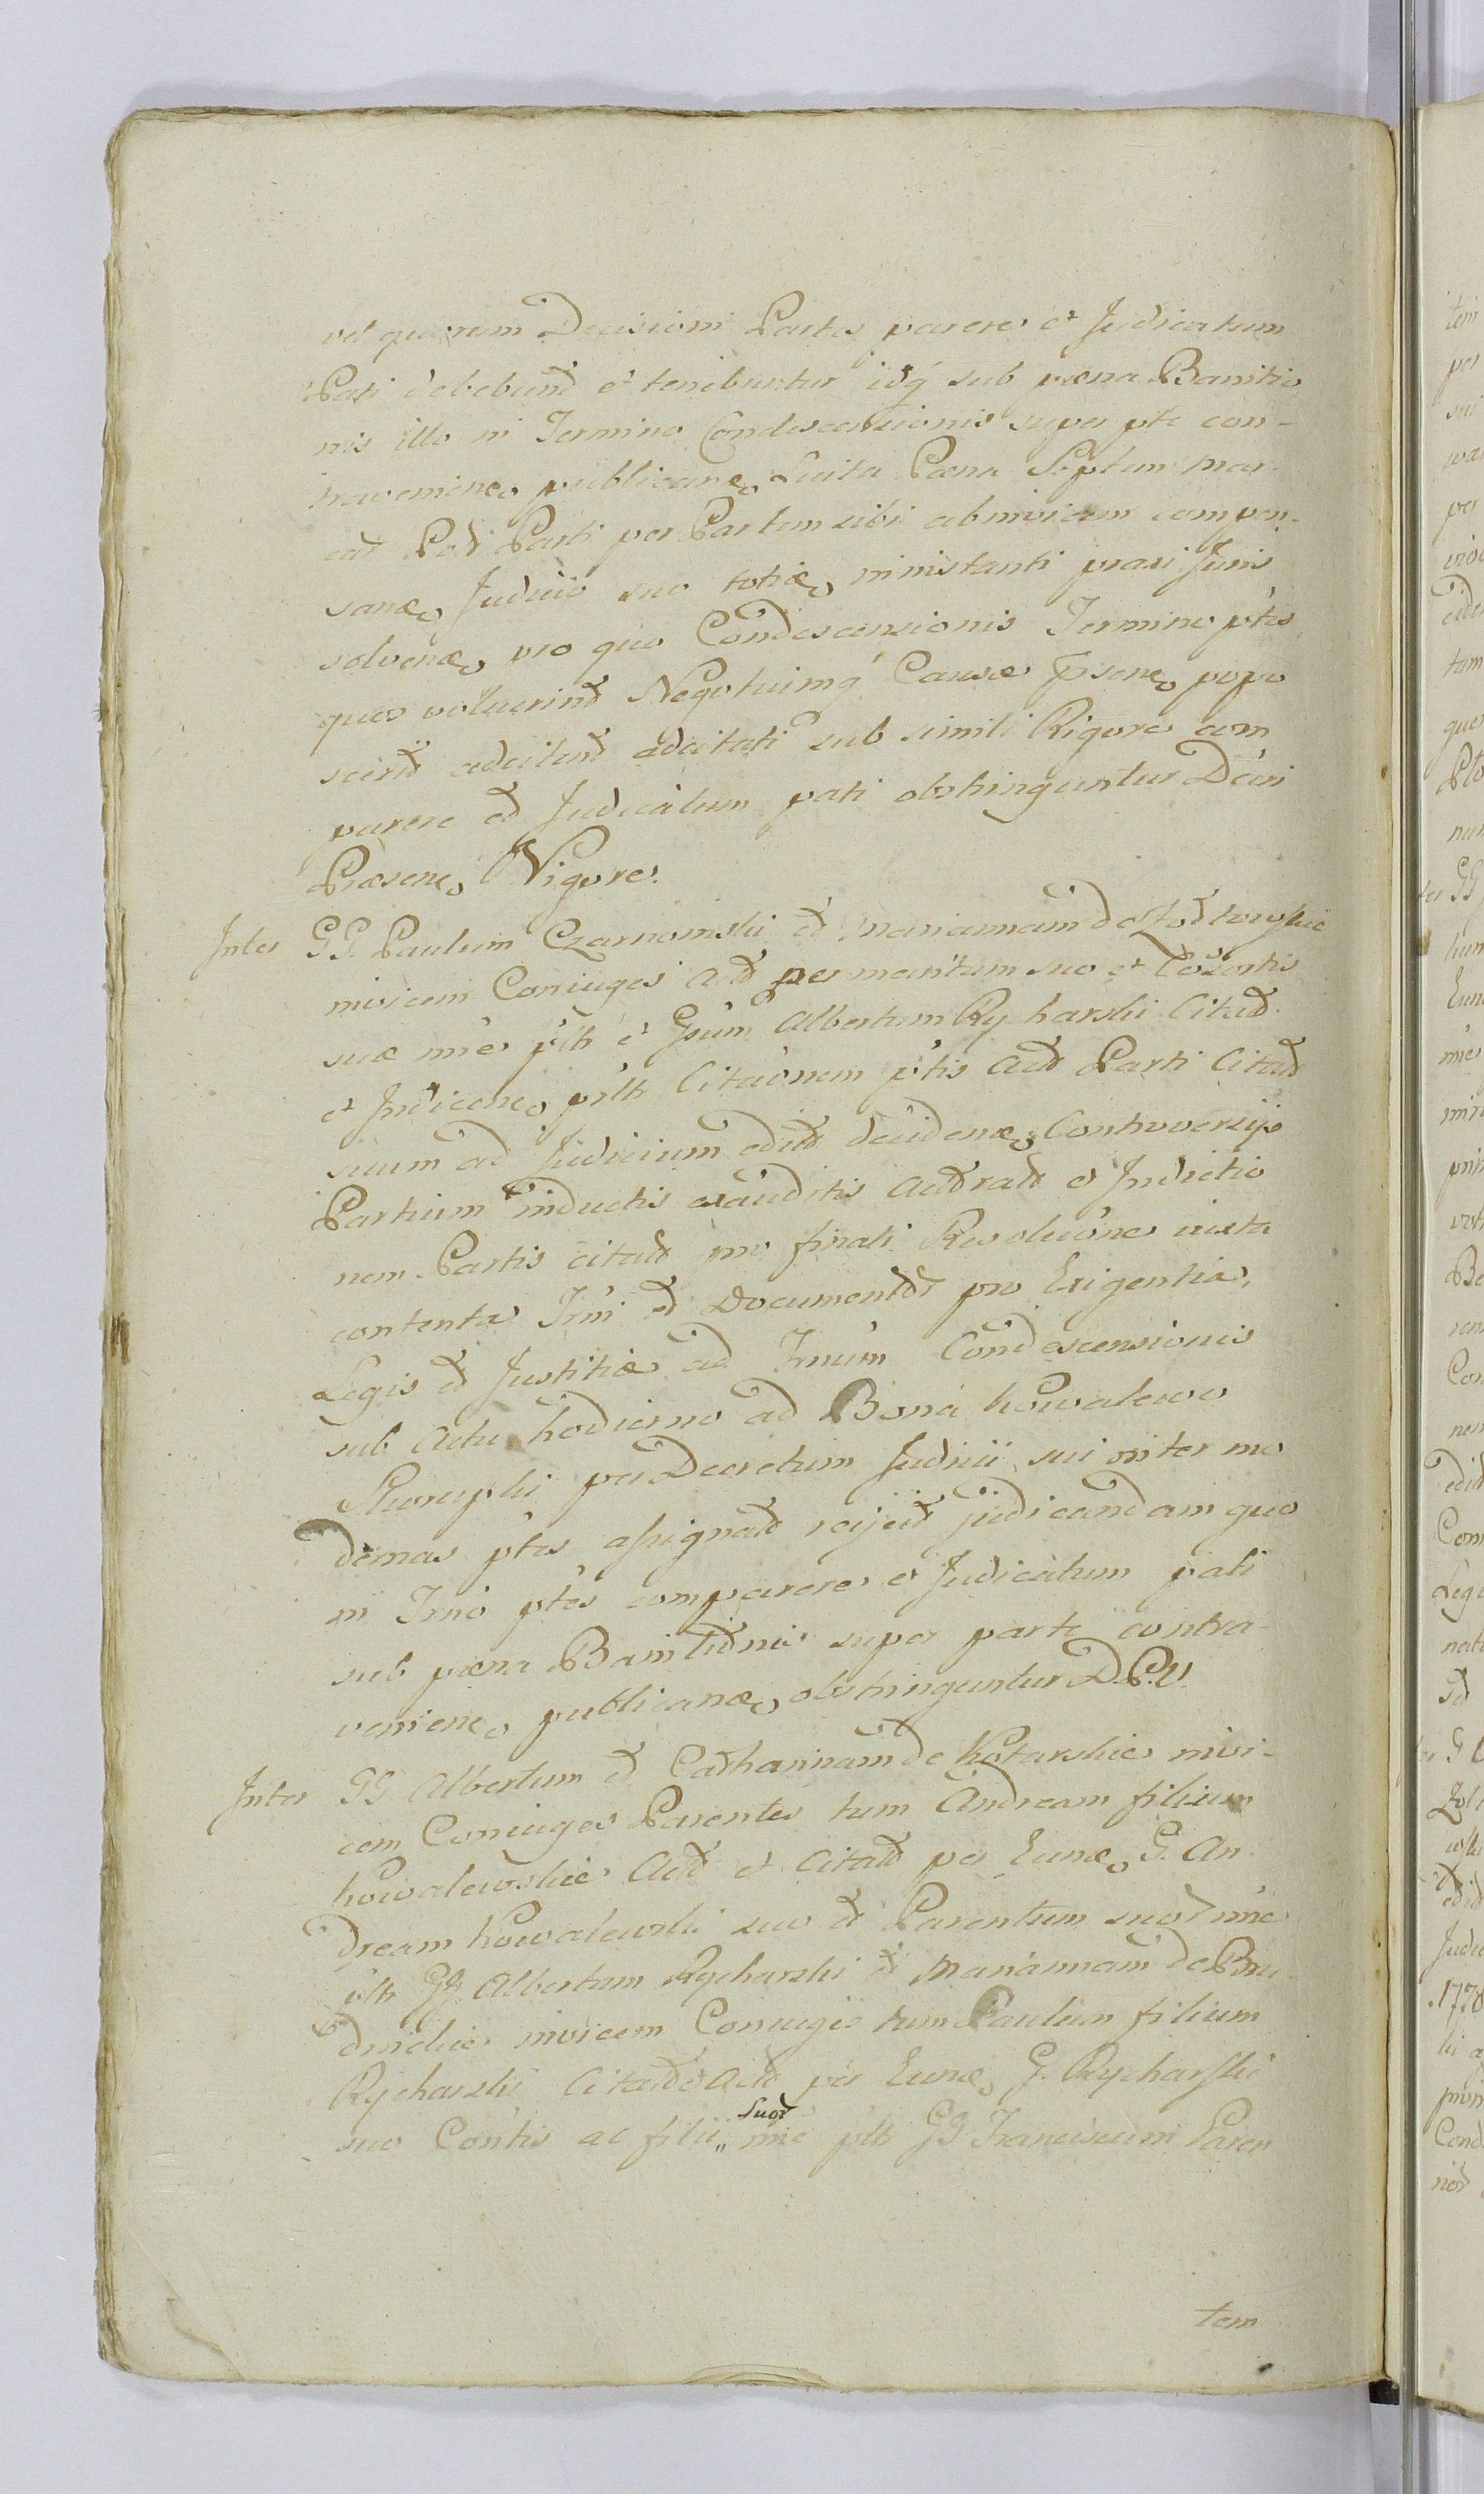 vel quorum Decisioni Partes parere et Judicatum
Pati debebunt et tenebuntur idq́ sub pœna Banitio
nis illo in Termino Condescensionis super pte con-
travenien publican Luita Pœna Septem mar-
car Parti per Partem sibi ab invicem compen-
san Judicio suo toties in instanti praxi Juris
solven pro quo Condescensionis Termino ptes
quos voluerint Negotiumq́ Causæ popo
scerit adcitent adcitati sub simili Rigore com
parere et Judicatum pati obstringuntur Dćri
Præsen Vigore.
Inter GG. Paulum Czarnomski et Mariannam de
invicem Coniuges Act per maritum suo et Consortis
suæ nńe pśltr et Gsum Albertum Rycharski Citat
et Indicen pśltr Citaónem ptis Act Parti Citat
suum ad Judicium edit deciden Controversijs
Partium inductis exauditis et Indictio
nem Partis citat pro finali Resolućone iuxta
contenta Trńi et Documentor pro Exigentia
Legis et Justitiæ ad Trńum Condescensionis
sub Actu hodierno ad Bona Kowalewo
Skorupki per Decretum Judicii sui inter mo
dernas ptes assignat reijcit judicandam quo
in Trńo ptes comparere et Judicatum pati
sub pœna Banitionis super parte contra-
venien publican obstringuntur D.P.V.
Inter GG Albertum et Catharinam de Kotarskie invi-
cem Coniuges Parentes tum Andream filium
Kowalewskie Act et Citat per Eun G. An
dream Kowalewski suo et Parentum suor nńe
pśltr GG. Albertum Rycharski et Mariannam de
invicem Coniuges tum Paulum filium
Rycharski Citat et Act per Eun G. Rycharski
suo Conśtis ac filii „ suor nńe pśltr GG Franciscum Paren
tem